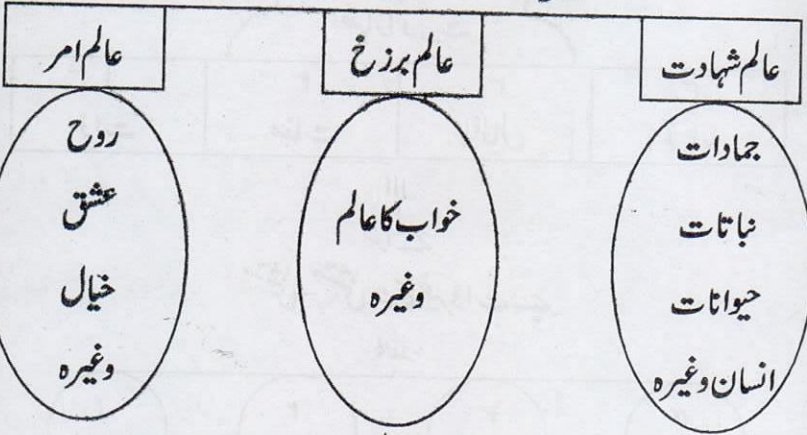 عالم شہادت
جمادات
نباتات
حیوانات
انسان وغیرہ
عالم برزخ
خواب کا عالم
وغیرہ
عالم امر
روح
عشق
خیال
وغیرہ